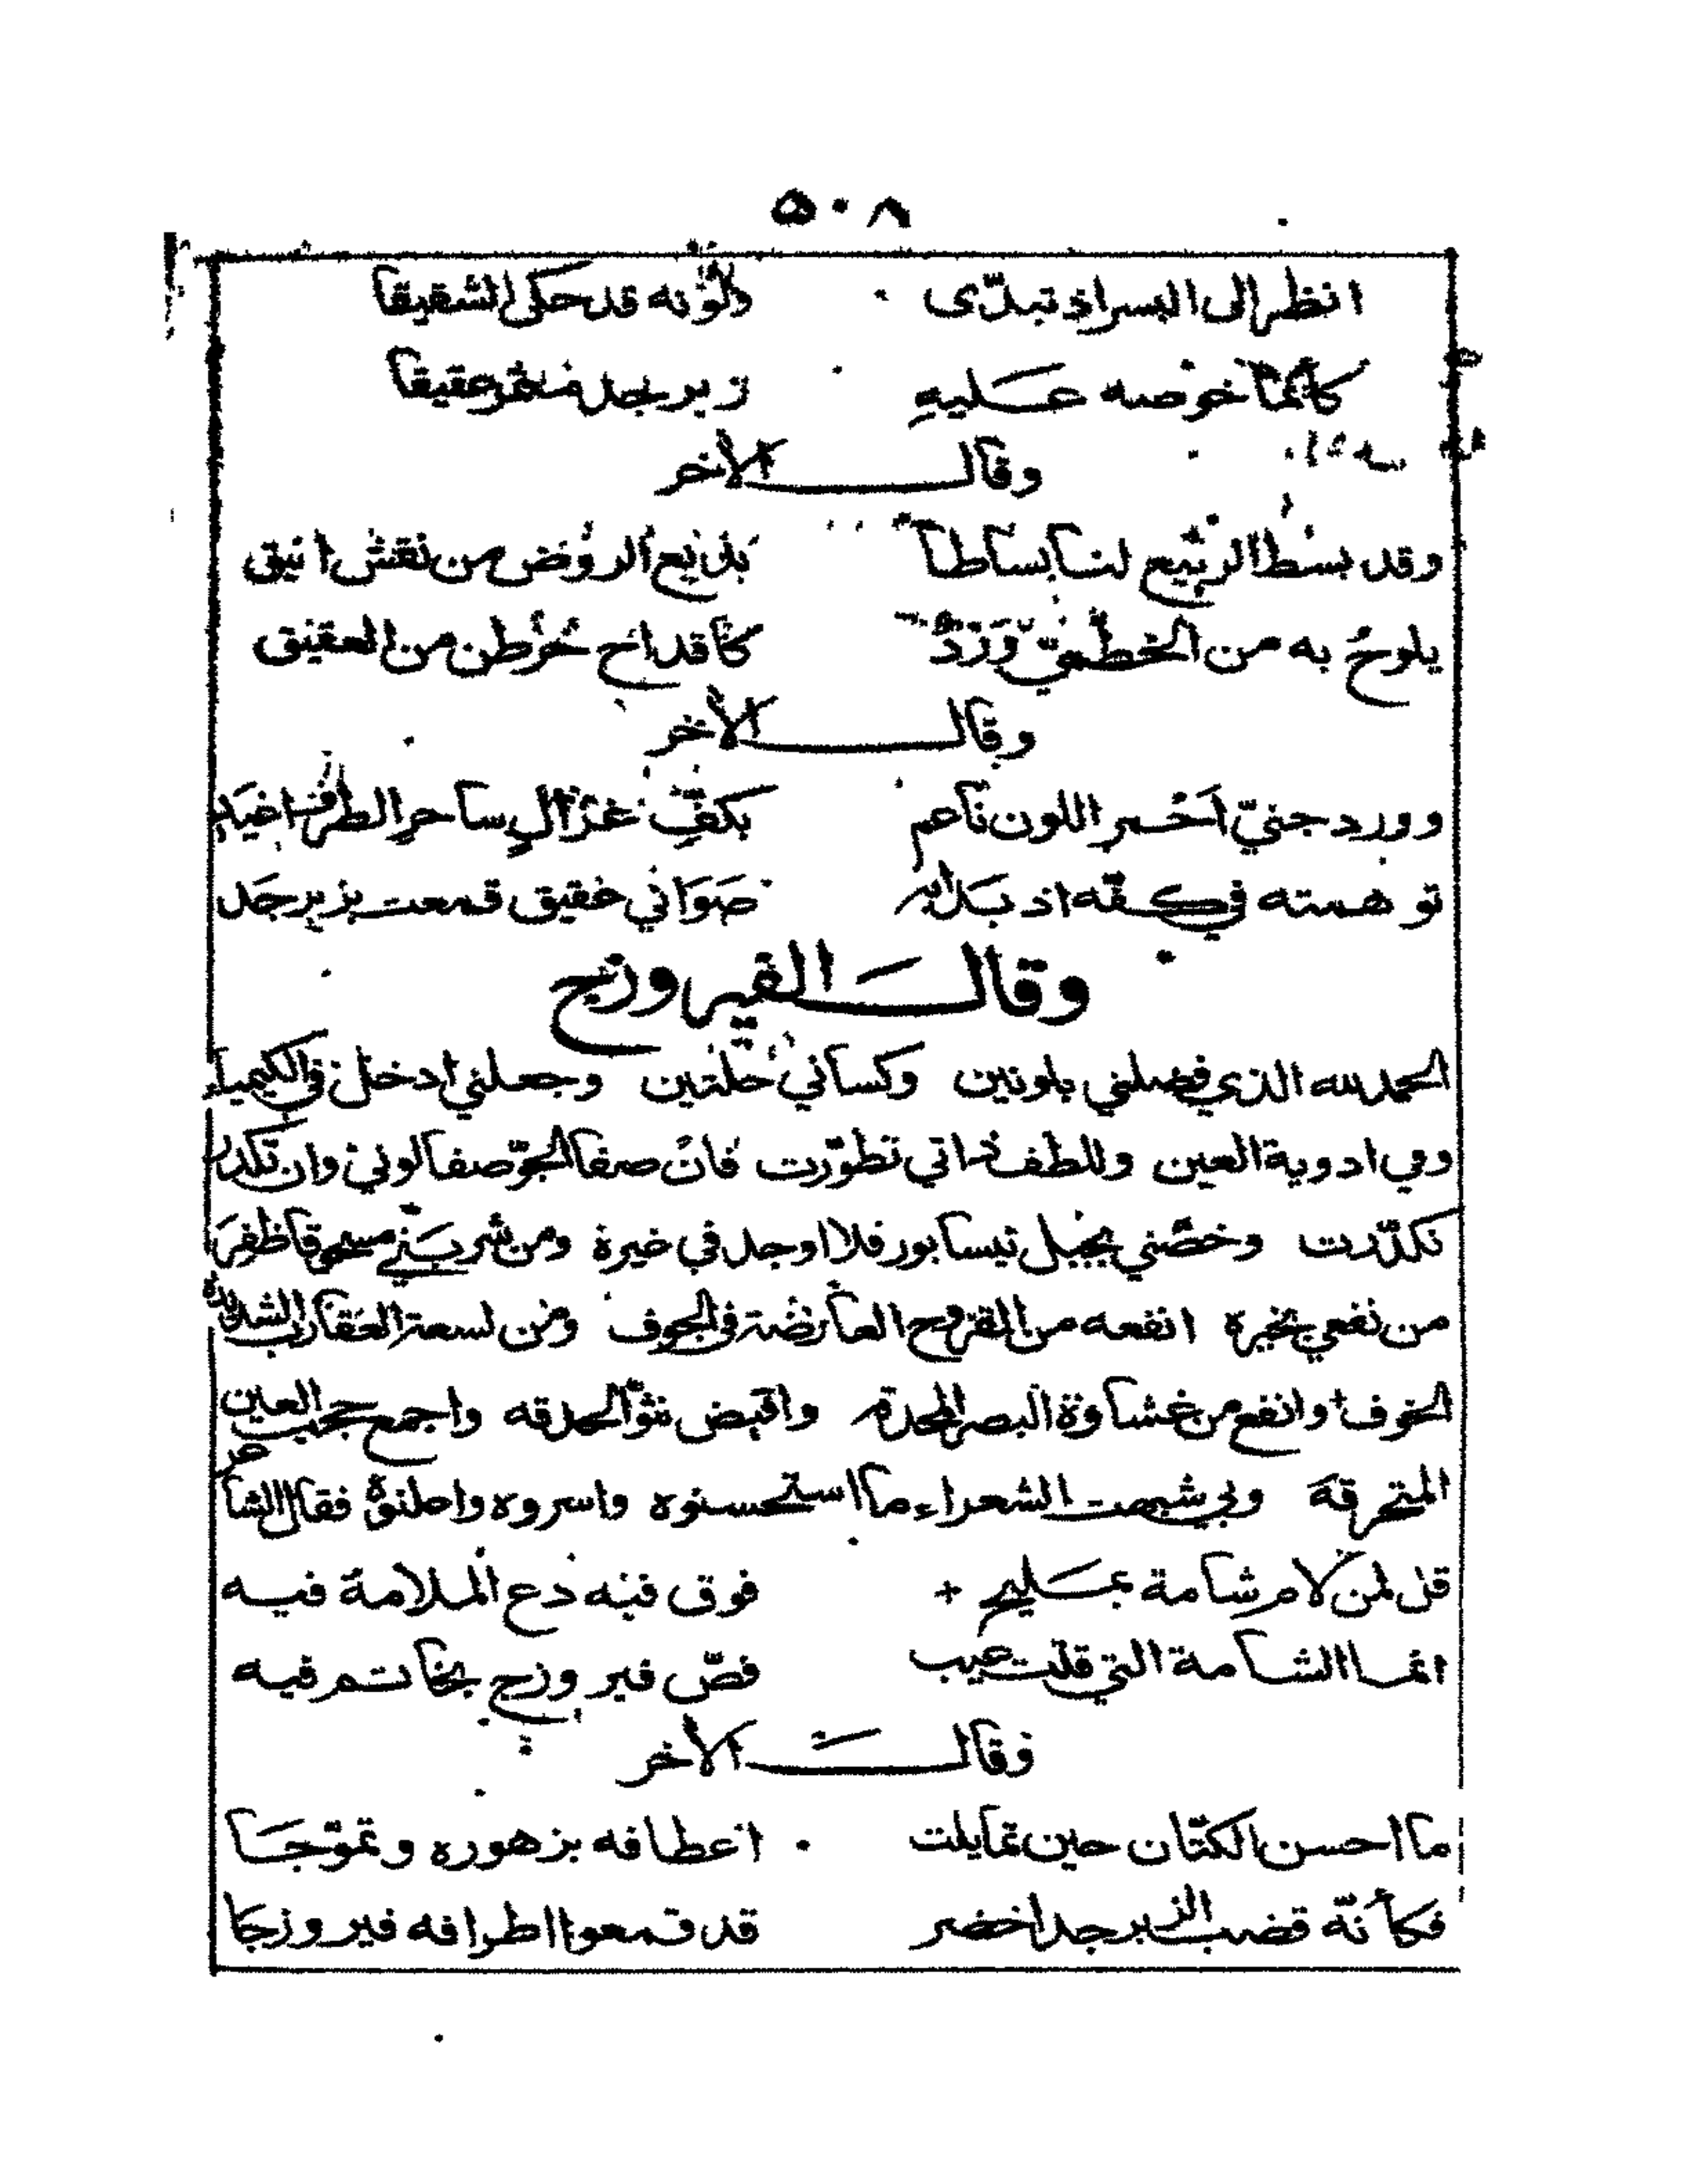 ٥٠٨
انظر الى البسر اذ تبدّى ولونه قد حكى الشقيقا
كأنّما خوصه عليهِ زبرجد مثمر عقيقا
وقال الأخر
وقد بسط الربيع لنا بساطا بديع الروض من نقش انيق
يلوحُ به من الخطميّ وَرْدٌ كأقداح خُرطن من العقيق
وقال الأخر
وورد جنيّ اَحْمر اللون ناعم بكفِّ غزالٍ ساحر الطرف اغيد
توهمته في كفّه اذ بَدا به صَوَاني عقيق قمعت بزبرجَد
وقال الفيروزج
الحمد لله الذي فضلني بلونين وكساني حلّتين وجعلني ادخل في الكيمياء
وفي ادوية العين وللطف ذاتي تطوّرت فان صفا الجوّ صفا لوني وان تكدر
تكدّرت وخصّني بجبل نيسابور فلا اوجد في غيرة ومن شربني مسحوقا ظفِرَ
من نفعي بخبرة انفعه من القروح العارضة في الجوف ومن لسعة العقارب الشديدة
الخوف وانفع من غشاوة البصر المحدة واقبض نتوّ الحدقه واجمع حجب العين
المتخرقة ولي شبهت الشعراء ما استحسنوه واسروه واطلنوة فقال الشاعر
قل لمن لام شامة بمليح + فوق فيه دع الملامة فيه
انما الشامة التي قلت عيب فصّ فيروزج بخاتم فيه
وقال الأخر
ما احسن الكتّان حين تمايلت اعطافه بزهوره وتموّجَا
فكأنّه قضب الزبرجد اخضر قد قمعوا اطرافه فيروزجا